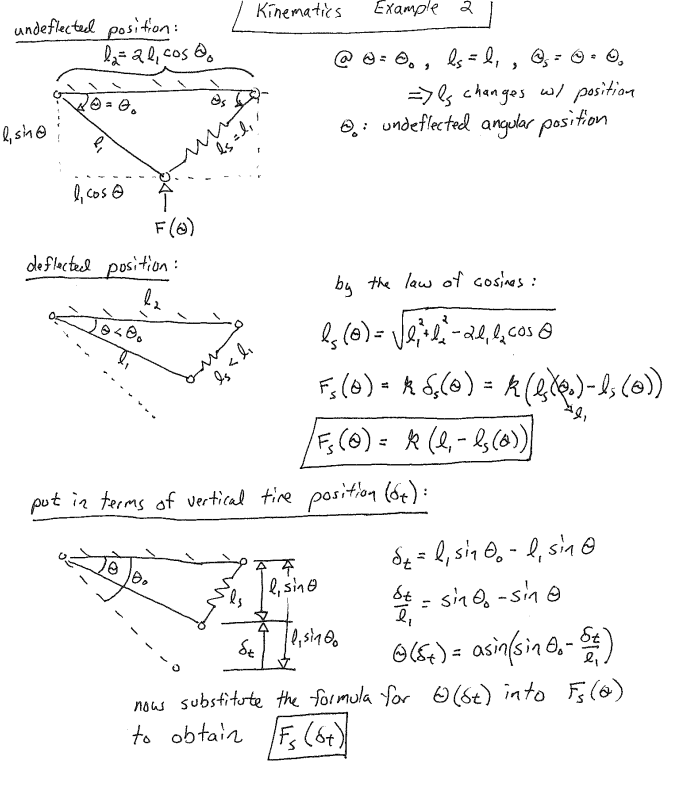 Kinematics Example 2
undeflected position:
l₂ = 2 l₁ cos θ₀
@ θ = θ₀ , lₛ = l₁ , θₛ = θ = θ₀
⇒ lₛ changes w/ position
θ₀: undeflected angular position
θ = θ₀
θₛ
l₁ sin θ
l₁
lₛ = l₁
l₁ cos θ
F(θ)
deflected position:
l₂
θ < θ₀
l₁
lₛ < l₁
by the law of cosines:
lₛ(θ) = √(l₁² + l₂² - 2l₁l₂ cos θ)
Fₛ(θ) = k δₛ(θ) = k(lₛ(θ₀) - lₛ(θ))
l₁
Fₛ(θ) = k(l₁ - lₛ(θ))
put in terms of vertical tire position (δₜ):
θ
θ₀
lₛ
l₁ sin θ
δₜ
l₁ sin θ₀
δₜ = l₁ sin θ₀ - l₁ sin θ
δₜ/l₁ = sin θ₀ - sin θ
θ(δₜ) = asin(sin θ₀ - δₜ/l₁)
now substitute the formula for θ(δₜ) into Fₛ(θ)
to obtain Fₛ(δₜ)